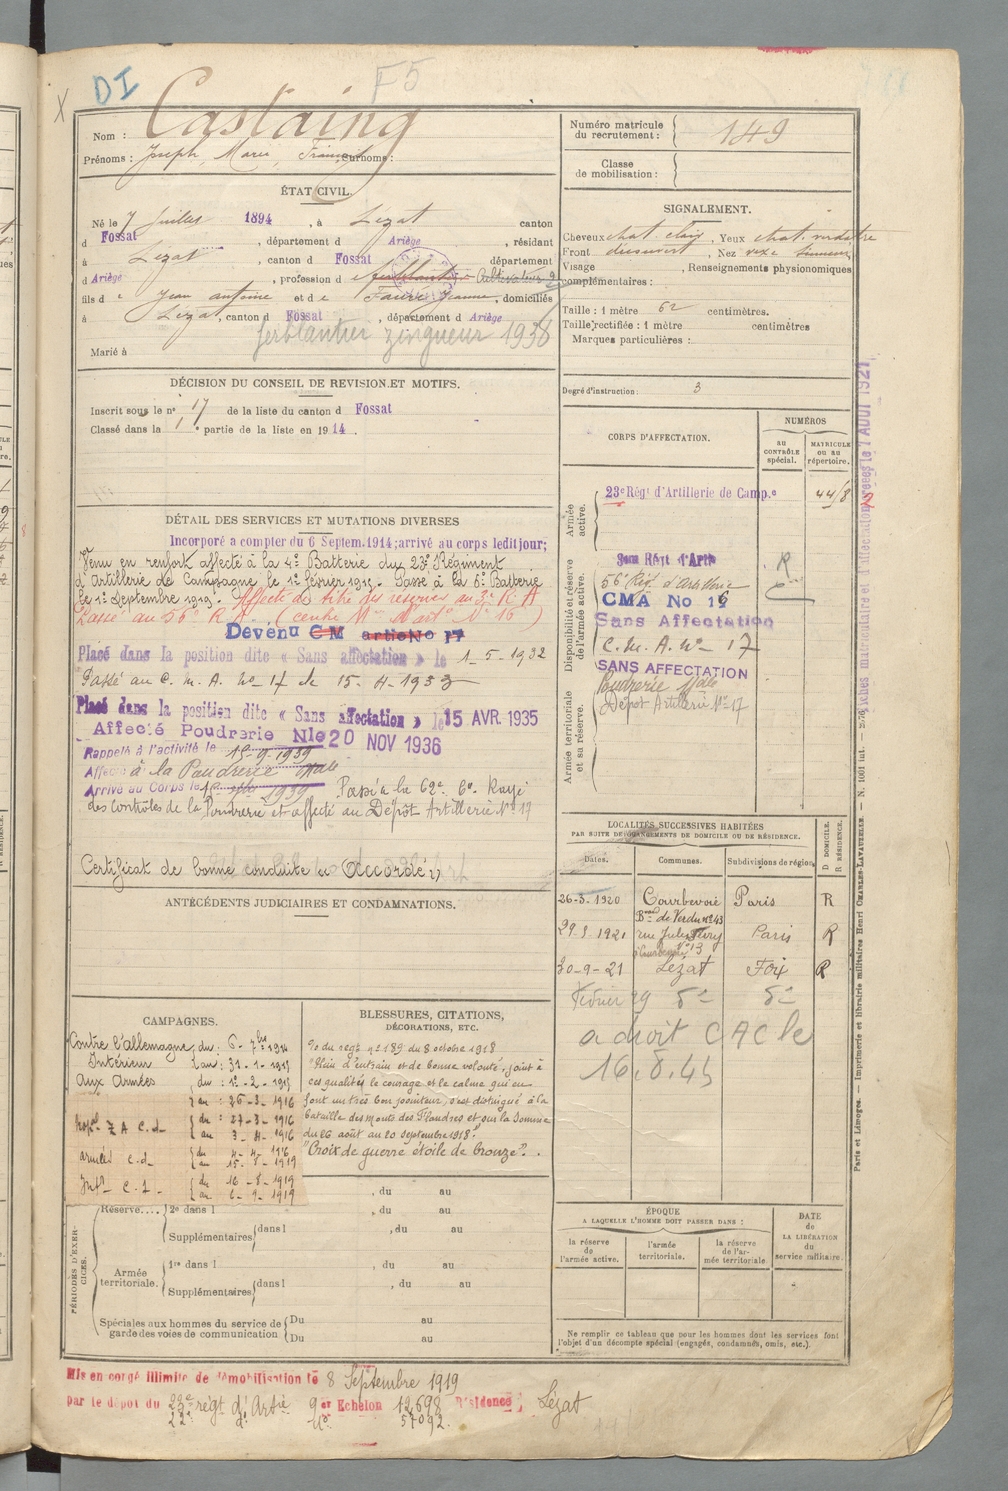 DI
F5
X
Nom : Castaing
Prénoms : Joseph, Marie, François Surnoms :
Numéro matricule du recrutement : 149
Classe de mobilisation :
ÉTAT CIVIL.
Né le 7 Juillet 1894, à Lézat canton
d Fossat, département d Ariège, résidant
à Lézat, canton d Fossat département
d Ariège, profession d ferblantier Cultivateur
fils de Jean antoine et de Faure Jeanne, domiciliés
à Lézat, canton d Fossat, département d Ariège
ferblantier zingueur 1938
Marié à
SIGNALEMENT.
Cheveux chat. clair, Yeux chat. verdatre
Front découvert, Nez
Visage , Renseignements physionomiques
complémentaires :
Taille : 1 mètre 62 centimètres.
Taille rectifiée : 1 mètre centimètres
Marques particulières :
Degré d'instruction : 3
DÉCISION DU CONSEIL DE REVISION ET MOTIFS.
Inscrit sous le n° 17 de la liste du canton d Fossat
Classé dans la 1e partie de la liste en 1914.
DÉTAIL DES SERVICES ET MUTATIONS DIVERSES
Incorporé a compter du 6 Septem. 1914; arrivé au corps ledit jour;
Venu en renfort affecté à la 4e Batterie du 23e Régiment
d'Artillerie de Campagne le 1er février 1915. Passé à la 6e Batterie
le 1er Septembre 1919. Affecté à titre des réserves au 3e R A
Passé au 56e R. A. (centre Mn d'artie N° 16)
Devenu CM artie No 17
Placé dans la position dite « Sans affectation » le 1-5-1932
Passé au C. M. A. No 17 le 15-4-1933
Placé dans la position dite « Sans affectation » le 15 AVR. 1935
Affecté Poudrerie Nle 20 NOV 1936
Rappelé à l'activité le 15-9-1939
Affecté à la Poudrerie Nale
Arrivé au Corps le 15 1939 Passé à la 62e Cie. Rayé
des contrôles de la Poudrerie et affecté au Dépôt Artillerie N° 17
Certificat de bonne conduite « Accordé »
CORPS D'AFFECTATION.
NUMÉROS
au CONTRÔLE spécial.
MATRICULE ou au répertoire.
Armée active.
23e Régt d'Artillerie de Camp.e 44/8
Disponibilité et réserve de l'armée active.
56e Rég. d'Artillerie
CMA No 16
Sans Affectation
C. M. A. N° 17
SANS AFFECTATION
Armée territoriale et sa réserve.
Poudrerie Nale
Dépôt Artillerie N° 17
R
LOCALITÉS SUCCESSIVES HABITÉES
PAR SUITE DE CHANGEMENTS DE DOMICILE OU DE RÉSIDENCE.
Dates. Communes. Subdivisions de région. D DOMICILE. R RÉSIDENCE.
26-3. 1920 Courbevoie Paris R
Bard de Verdun n° 43
29.3.1921 rue Jules Ferry Paris R
Courbevoie N° 13
30-9-21 Lézat Foix R
Février 29 do do
a droit C A C le
16.8.45
ANTÉCÉDENTS JUDICIAIRES ET CONDAMNATIONS.
CAMPAGNES.
Contre l'allemagne du : 6-7bre 1914
Intérieur au : 31-1-1915
Aux Armées du : 1er-2-1915
au : 26-3-1916
Hopal Z A C.d. du : 27-3-1916
au 3-4-1916
armées C.d. du 4-4-1916
au 15-8-1919
Intr C.S. du 16-8-1919
au 6-9-1919
BLESSURES, CITATIONS,
DÉCORATIONS, ETC.
O/ du regt n° 189 du 8 octobre 1918
"Plein d'entrain et de bonne volonté, joint à
ces qualités le courage et le calme qui en
font un très bon pointeur, s'est distingué à la
bataille des monts des Flandres et sur la Somme
du 26 août au 20 septembre 1918"
"Croix de guerre étoile de bronze".
PÉRIODES D'EXERCICES.
, du au
Réserve.... 2e dans l , du au
Supplémentaires dans l , du au
Armée territoriale. 1re dans l , du au
Supplémentaires dans l , du au
Spéciales aux hommes du service de garde des voies de communication Du au
Du au
ÉPOQUE
A LAQUELLE L'HOMME DOIT PASSER DANS :
la réserve de l'armée active.
l'armée territoriale.
la réserve de l'armée territoriale
DATE de LA LIBÉRATION du service militaire.
Ne remplir ce tableau que pour les hommes dont les services font
l'objet d'un décompte spécial (engagés, condamnés, omis, etc.).
Mis en congé illimité de démobilisation le 8 Septembre 1919
par le dépôt du 23e régt d'Artie 9er Echelon 12.698 Résidence ; Lézat
22e do No 57092.
Fiches matriculaire et d'affectation créées le 7 AOUT 1921
Paris et Limoges. — Imprimerie et librairie militaires Henri CHARLES-LAVAUZELLE. — N. 1001 int.